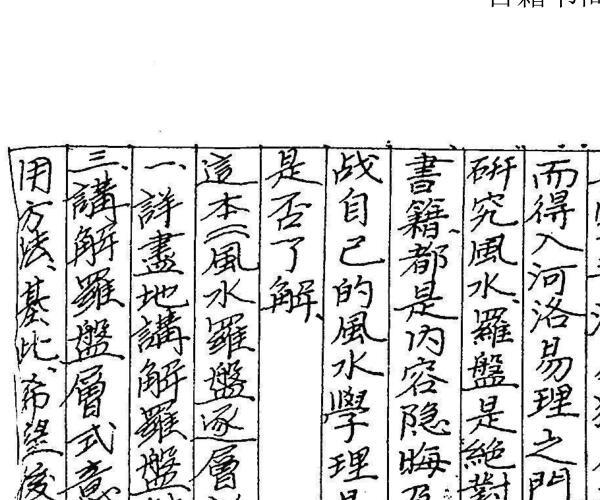 而得入河洛易理之門
研究風水、羅盤是絕對
書籍、都是内容隐晦
战自己的風水學理是
是否了解、
這本《風水羅盤逐層
一、詳盡地講解羅盤
三、講解羅盤層式意
用方法、基比、希望後